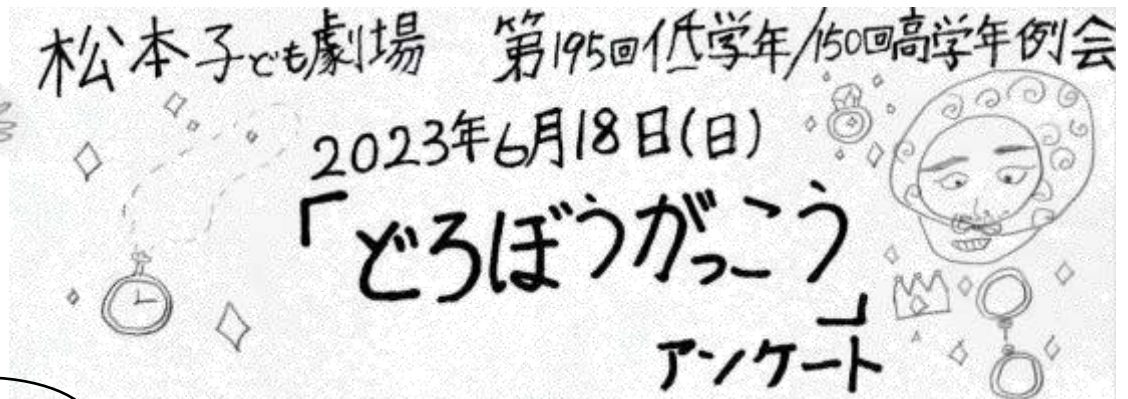 松本子ども劇場 第195回低学年/150回高学年例会
2023年6月18日(日)
「どろぼうがっこう」
アンケート